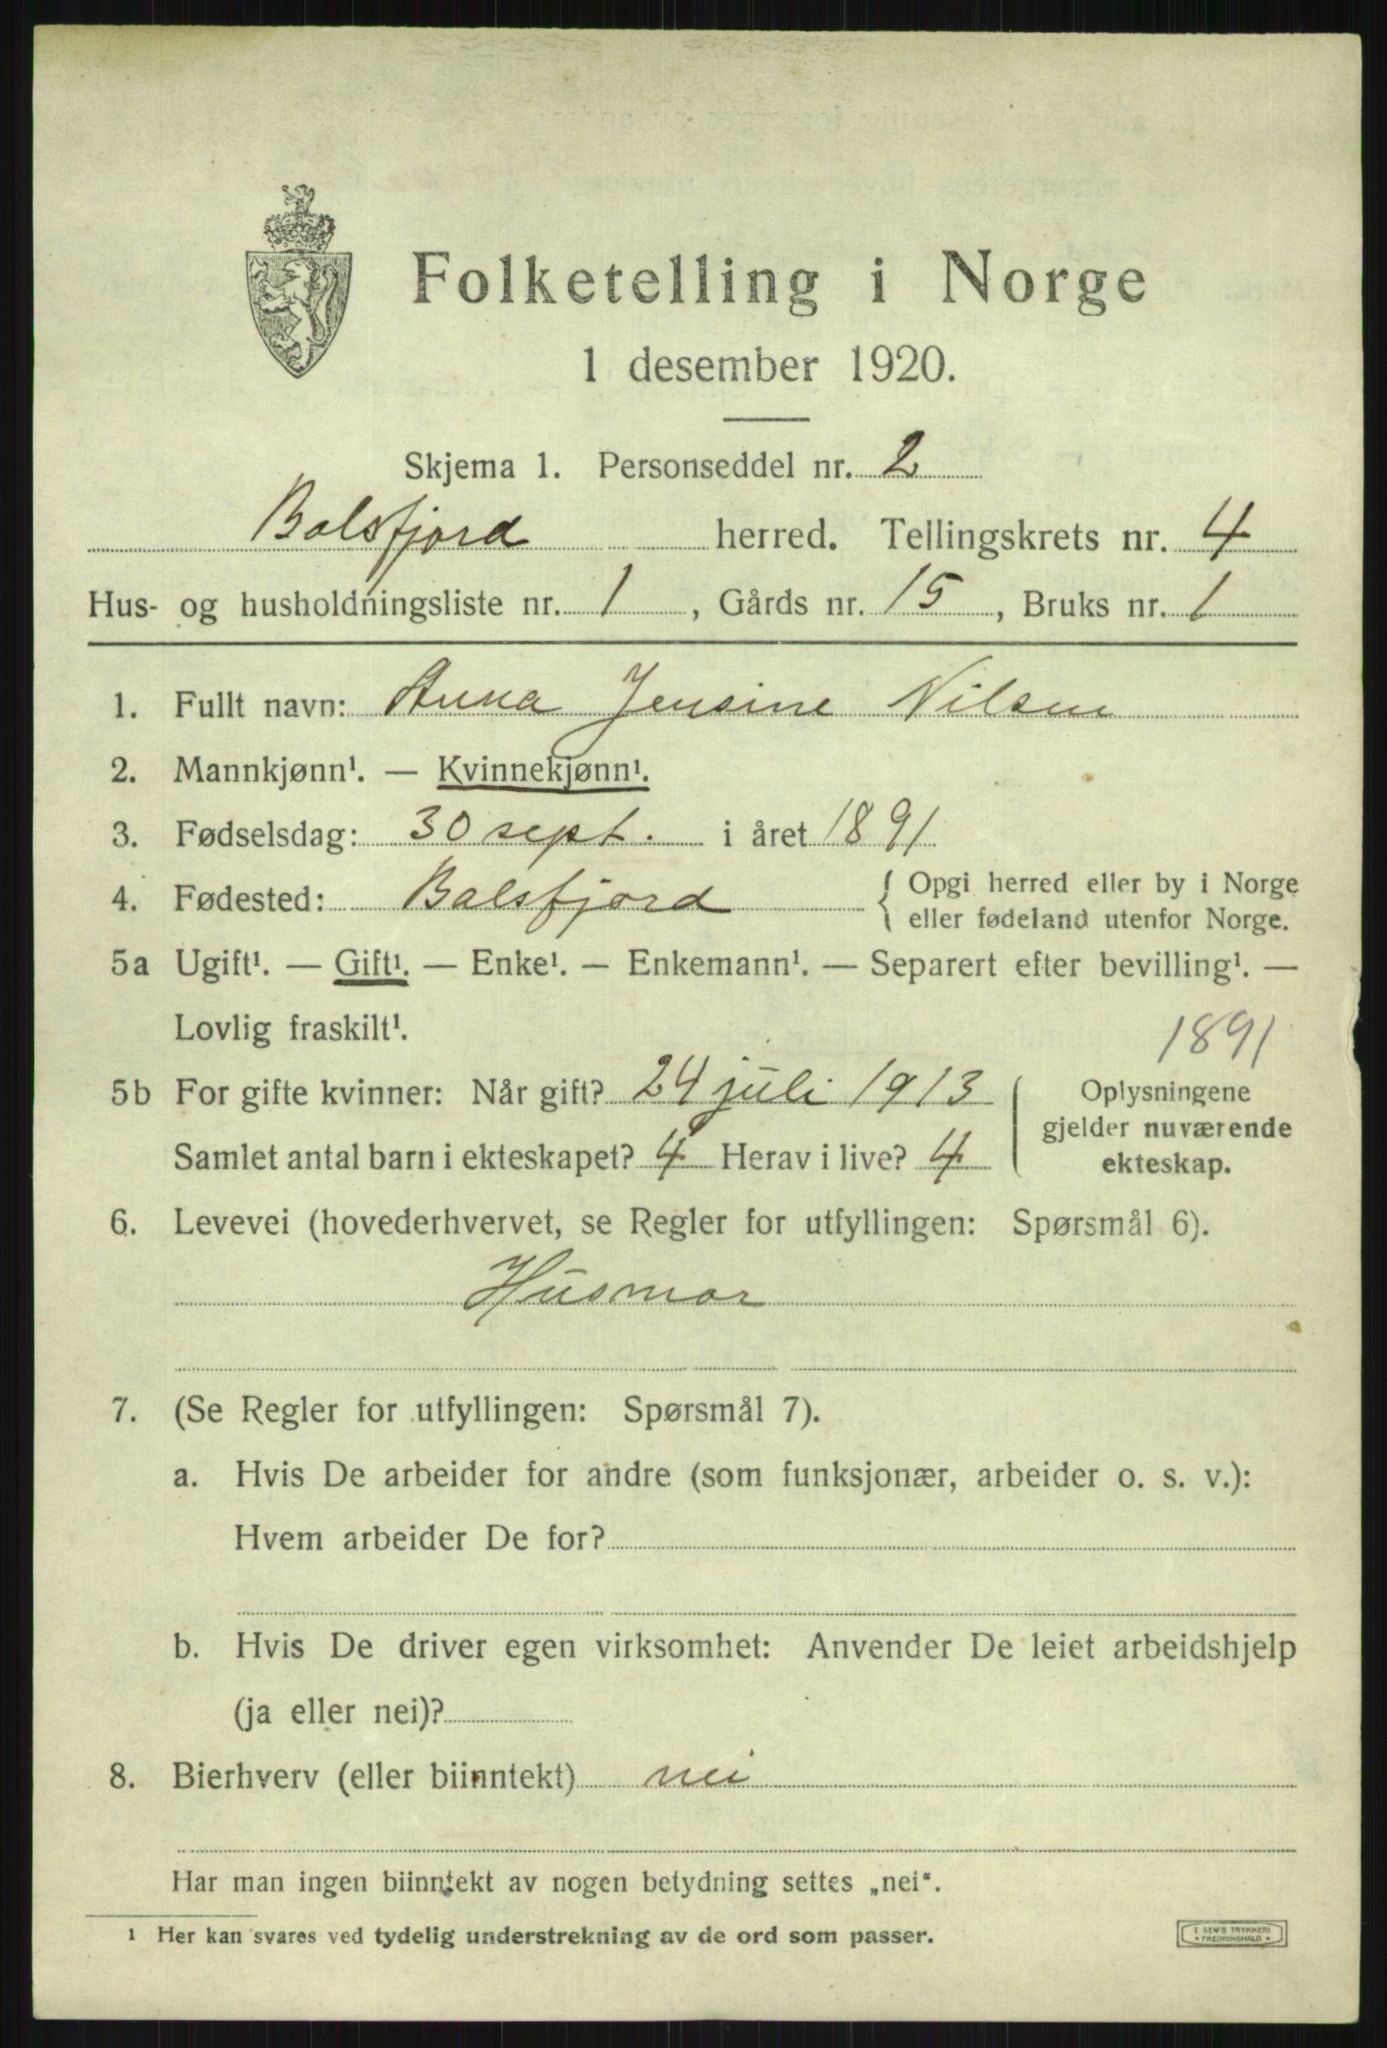 Folketelling i Norge
1 desember 1920.
Skjema 1. Personseddel nr. 2
Balsfjord herred. Tellingskrets nr. 4
Hus- og husholdningsliste nr. 1, Gårds nr. 15, Bruks nr. 1
1. Fullt navn: Anna Jensine Nilsen
2. Mannkjønn¹. — Kvinnekjønn¹.
3. Fødselsdag: 30 sept. i året 1891
4. Fødested: Balsfjord { Opgi herred eller by i Norge
eller fødeland utenfor Norge.
5a Ugift¹. — Gift¹. — Enke¹. — Enkemann¹. — Separert efter bevilling¹. —
Lovlig fraskilt¹.
1891
5b For gifte kvinner: Når gift? 24 juli 1913
Samlet antal barn i ekteskapet? 4 Herav i live? 4
Oplysningene
gjelder nuværende
ekteskap.
6. Levevei (hovederhvervet, se Regler for utfyllingen: Spørsmål 6).
Husmor
7. (Se Regler for utfyllingen: Spørsmål 7).
a. Hvis De arbeider for andre (som funksjonær, arbeider o. s. v.):
Hvem arbeider De for?
b. Hvis De driver egen virksomhet: Anvender De leiet arbeidshjelp
(ja eller nei)?
8. Bierhverv (eller biinntekt) nei
Har man ingen biinntekt av nogen betydning settes „nei“.
¹ Her kan svares ved tydelig understrekning av de ord som passer.
E SEM'S TRYKKERI
FREDRIKSHALD